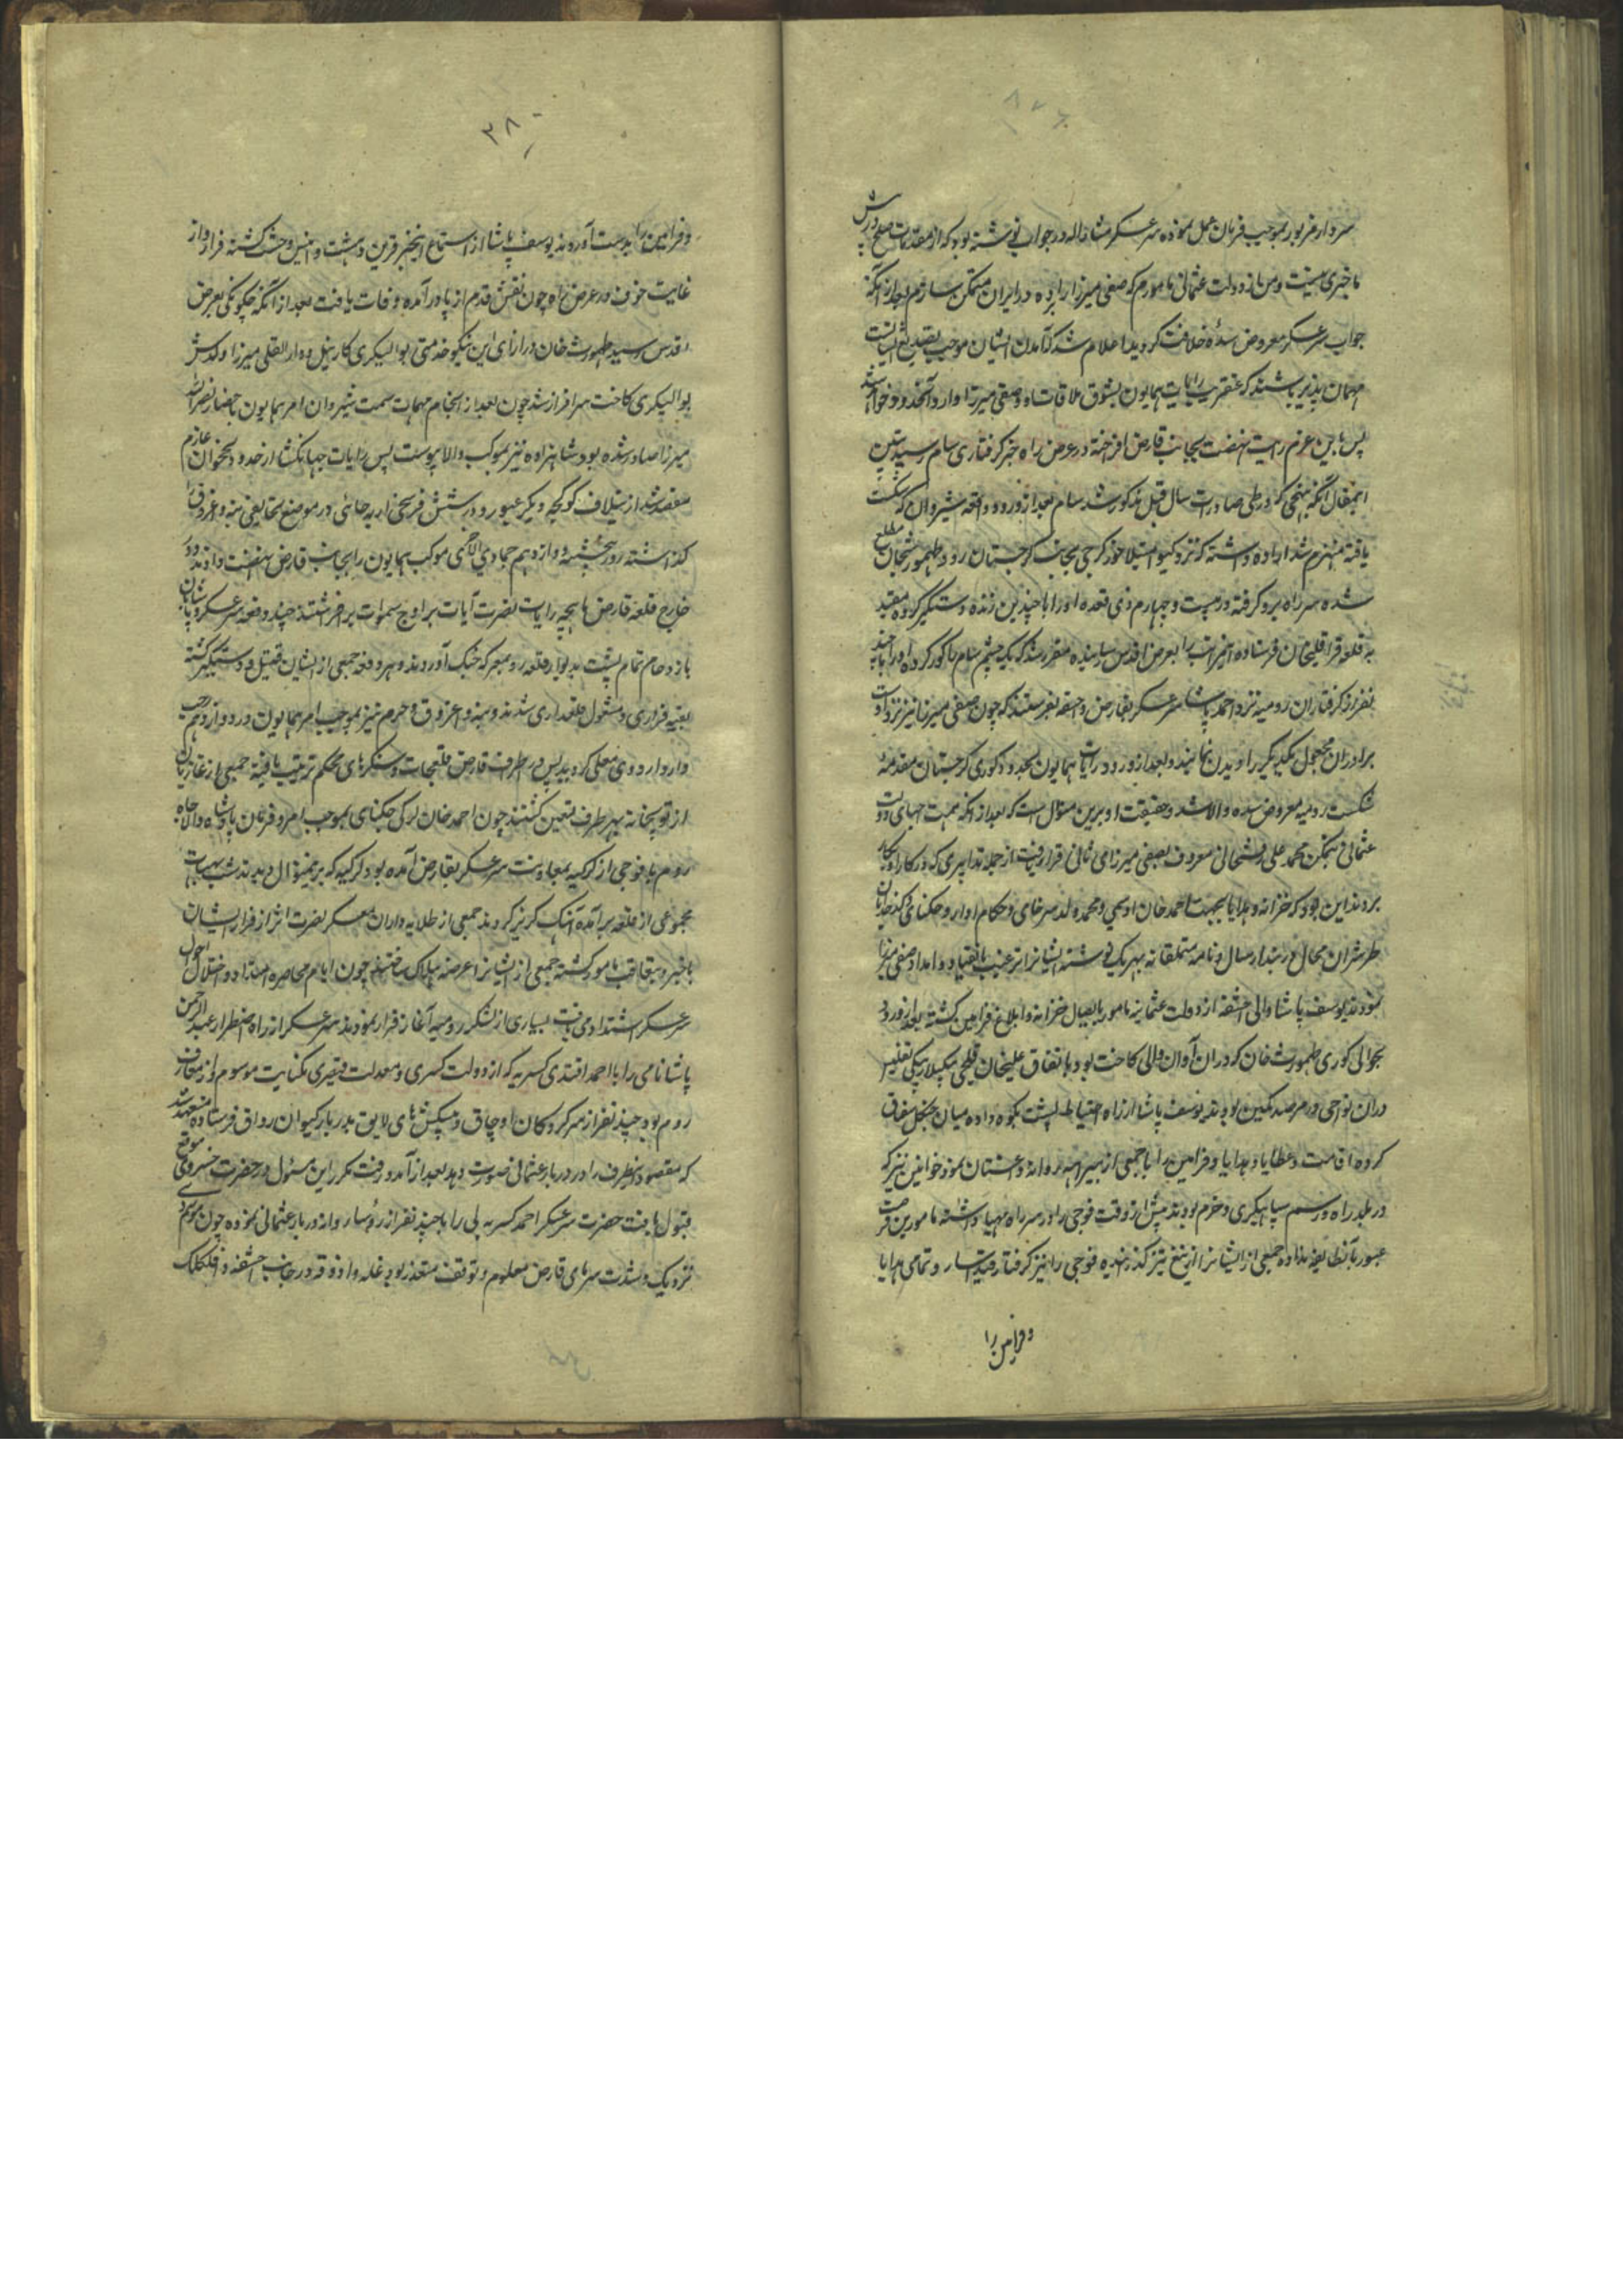 سردار مزبور بموجب فرمان عمل نموده سر عسکر مشار الیه در جواب نوشته بود که از مقدمات صلح
ما خبری نیست و من از دولت عثمانی مامورم که صفی میرزا را برده در ایران متمکن سازم بعد از آنکه
جواب سر عسکر معروض سدهٔ خلافت گردید اعلام شد که آمدن ایشان موجب تصدیع ایشانست
مهمان پذیر باشند که عنقریب رایات همایون بشوق ملاقات او و صفی میرزا وارد آنحدود خواهد شد
پس باین عزم رایت نهضت بجانب قارص افراخته در عرض راه خبر گرفتاری سام رسید تبیین
اینمقال آنکه بنهجی که در طی صادرات سال قبل مذکور شد سام بعد از ورود واقعه شیروان که شکست
یافته منهزم شد اراده داشته که نزد کیو امیلاخور گرجی بجانب گرجستان رود طهمورثخان مطلع
شده سر راه برو گرفته در بیست و چهارم ذی قعده او را با چندین زنده دستگیر کرده مقید
به قلعه قراقلیخان فرستاده اینمراتب را بعرض اقدس رسانیده مقرر شد که یک چشم سام را کور کرده او را با چند
نفر از گرفتاران رومیه نزد احمد پاشا سر عسکر بقارص و اخسقه بفرستند که چون صفی میرزا نیز نزد اوست
برادران مجهول یکدیگر را دیدن نمایند و بعد از ورود رایات همایون بحدود کوری گرجستان مقدمه
شکست رومیه معروض سده والا شد و حقیقت او برین منوال است که بعد از آنکه بهمت امنای دولت
عثمانی تمکن محمد علی رفسنجانی معروف بصفی میرزای ثانی قرار یافت از جمله تدابیری که در کار او بکار
بردند این بود که خزانه و هدایا بجهت احمد خان اوسمی و محمد ولد سرخای و حکام اوار و جنکتای و کدخدایان
طبرسران محال زند ارسال و نامه متملقانه بهر یک نوشته ایشانرا ترغیب بانقیاد و امداد صفی میرزا
نمودند یوسف پاشا والی اخسقه از دولت عثمانیه مامور بایصال خزانه و ابلاغ فرامین گشته بعد از ورود
بحوالی کوری طهمورث خان که در ان آوان والی کاخت بود باتفاق علیخان قلیجی بیگلربیگی تفلیس
در ان نواحی در مرصد کمین بودند یوسف پاشا از راه احتیاط پشت بکوه داده میان جنگل سغناق
کرده اقامت و عطایا و هدایا و فرامین را با جمعی از بیراهه روانه داغستان نمود خوانین نیز که
در بلد راه و رسم سپاهیگری و حزم بودند پیش از وقت فوجی را در سر راه مهیا داشته مامورین فرصت
عبور بآنطایفه نداده جمعی از ایشانرا از تیغ تیز گذرانیده فوجی را نیز گرفتار قید اسار و تمامی هدایا
و فرامین را
۳۸۰
و فرامین را بدست آوردند یوسف پاشا از استماع اینخبر قرین دهشت و انیس وحشت گشته فرار و از
غایت خوف در عرض راه چون نقش قدم از پا در آمده وفات یافت بعد از آنکه چگونگی بعرض
اقدس رسید طهمورث خان در ازای این نیکو خدمتی بوالیگری کارتیل و ارالقلی میرزا ولدش
بوالیگری کاخت سرافراز شد چون بعد از انجام مهمات سمت شیروان امر همایون باحضار نصرالله
میرزا صادر شده بود شاهزاده نیز بموکب والا پیوست پس رایات جهانگشا از حدود نخجوان عازم
مقصد شد از ییلاف کوکچه و یکر عبور و در شش فرسخی اربه چائی در موضع سنجانغی بنه و اغروق را
گذاشته روز پنجشنبه دوازدهم جمادی الاخری موکب همایون را بجانب قارص نهضت داده در
خارج قلعه قارص ماهچه رایات نصرت آیات بر اوج سموات بر افراشتند چند دفعه سر عسکر و پاشایان
بازدحام تمام پشت بدیوار قلعه رو بمعرکه جنگ آوردند و هر دفعه جمعی از ایشان قتیل و دستگیر گشته
بقیه فراری و مشغول قلعه‌داری شدند و بنه و اغروق و حرم نیز بموجب امر همایون در دوازدهم رجب
وارد اردوی معلی گردید پس در اطراف قارص قلعجات و سنگرهای محکم ترتیب یافته جمعی از غازیان
از توپخانه بهر طرف تعیین گشتند چون احمد خان لزگی جنکتای بموجب امر و فرمان پادشاه والاجاه
روم با فوجی از لزگیه بمعاونت سر عسکر بقارص آمده بود لزگیه که بر ینمنوال دیدند شب بهیات
مجموعی از قلعه بر آمده آهنگ گریز کردند جمعی از طلایه داران عسکر نصرت اثر از فرار ایشان
باخبر و بتعاقب مامور گشته جمعی از ایشانرا عرضه هلاک ساختند چون ایام محاصره امتداد و اختلال احوال
سر عسکر اشتداد می یافت بسیاری از لشکر رومیه آغاز فرار نمودند سر عسکر از راه اضطرار عبد الرحمن
پاشا نامی را با احمد افندی کسریه که از دولت کسری و معدلت قیصری بکفایت موسوم و از معارف
روم بود با چند نفر از سر کردگان اوجاق و پیشکش های لایق بدربار کیوان رواق فرستاده مستعد شد
که مقصود اینطرف را در دربار عثمانی صورت دهد بعد از آمد و رفت مکرر این مسئول در حضرت خسروی موقع
قبول یافت حضرت سر عسکر احمد کسریه لی را با چند نفر از رؤسا روانه دربار عثمانی نموده چون موسم دی
نزدیک و شدت سرمای قارص معلوم و توقف متعذر بود غله و آذوقه در جانب اخسقه و آخلکلک